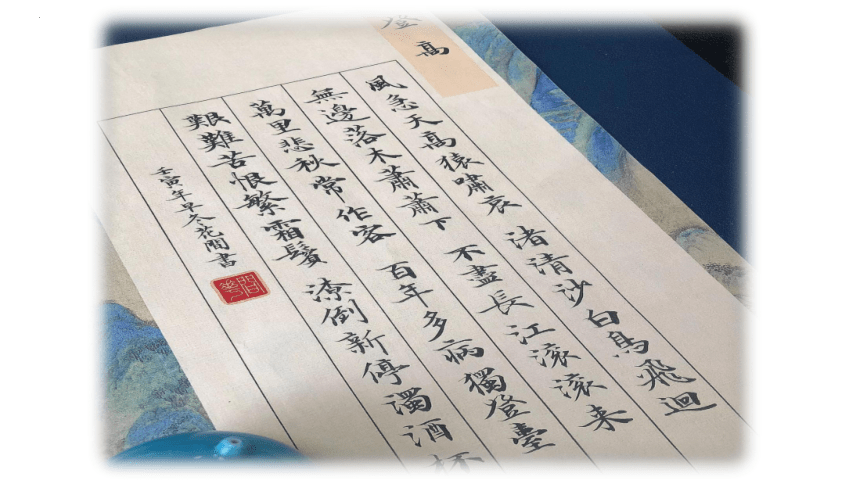 登高
風急天高猿嘯哀 渚清沙白鳥飛迴
無邊落木蕭蕭下 不盡長江滾滾来
萬里悲秋常作客 百年多病獨登臺
艱難苦恨繁霜鬢 潦倒新停濁酒杯
壬寅年早冬花間書